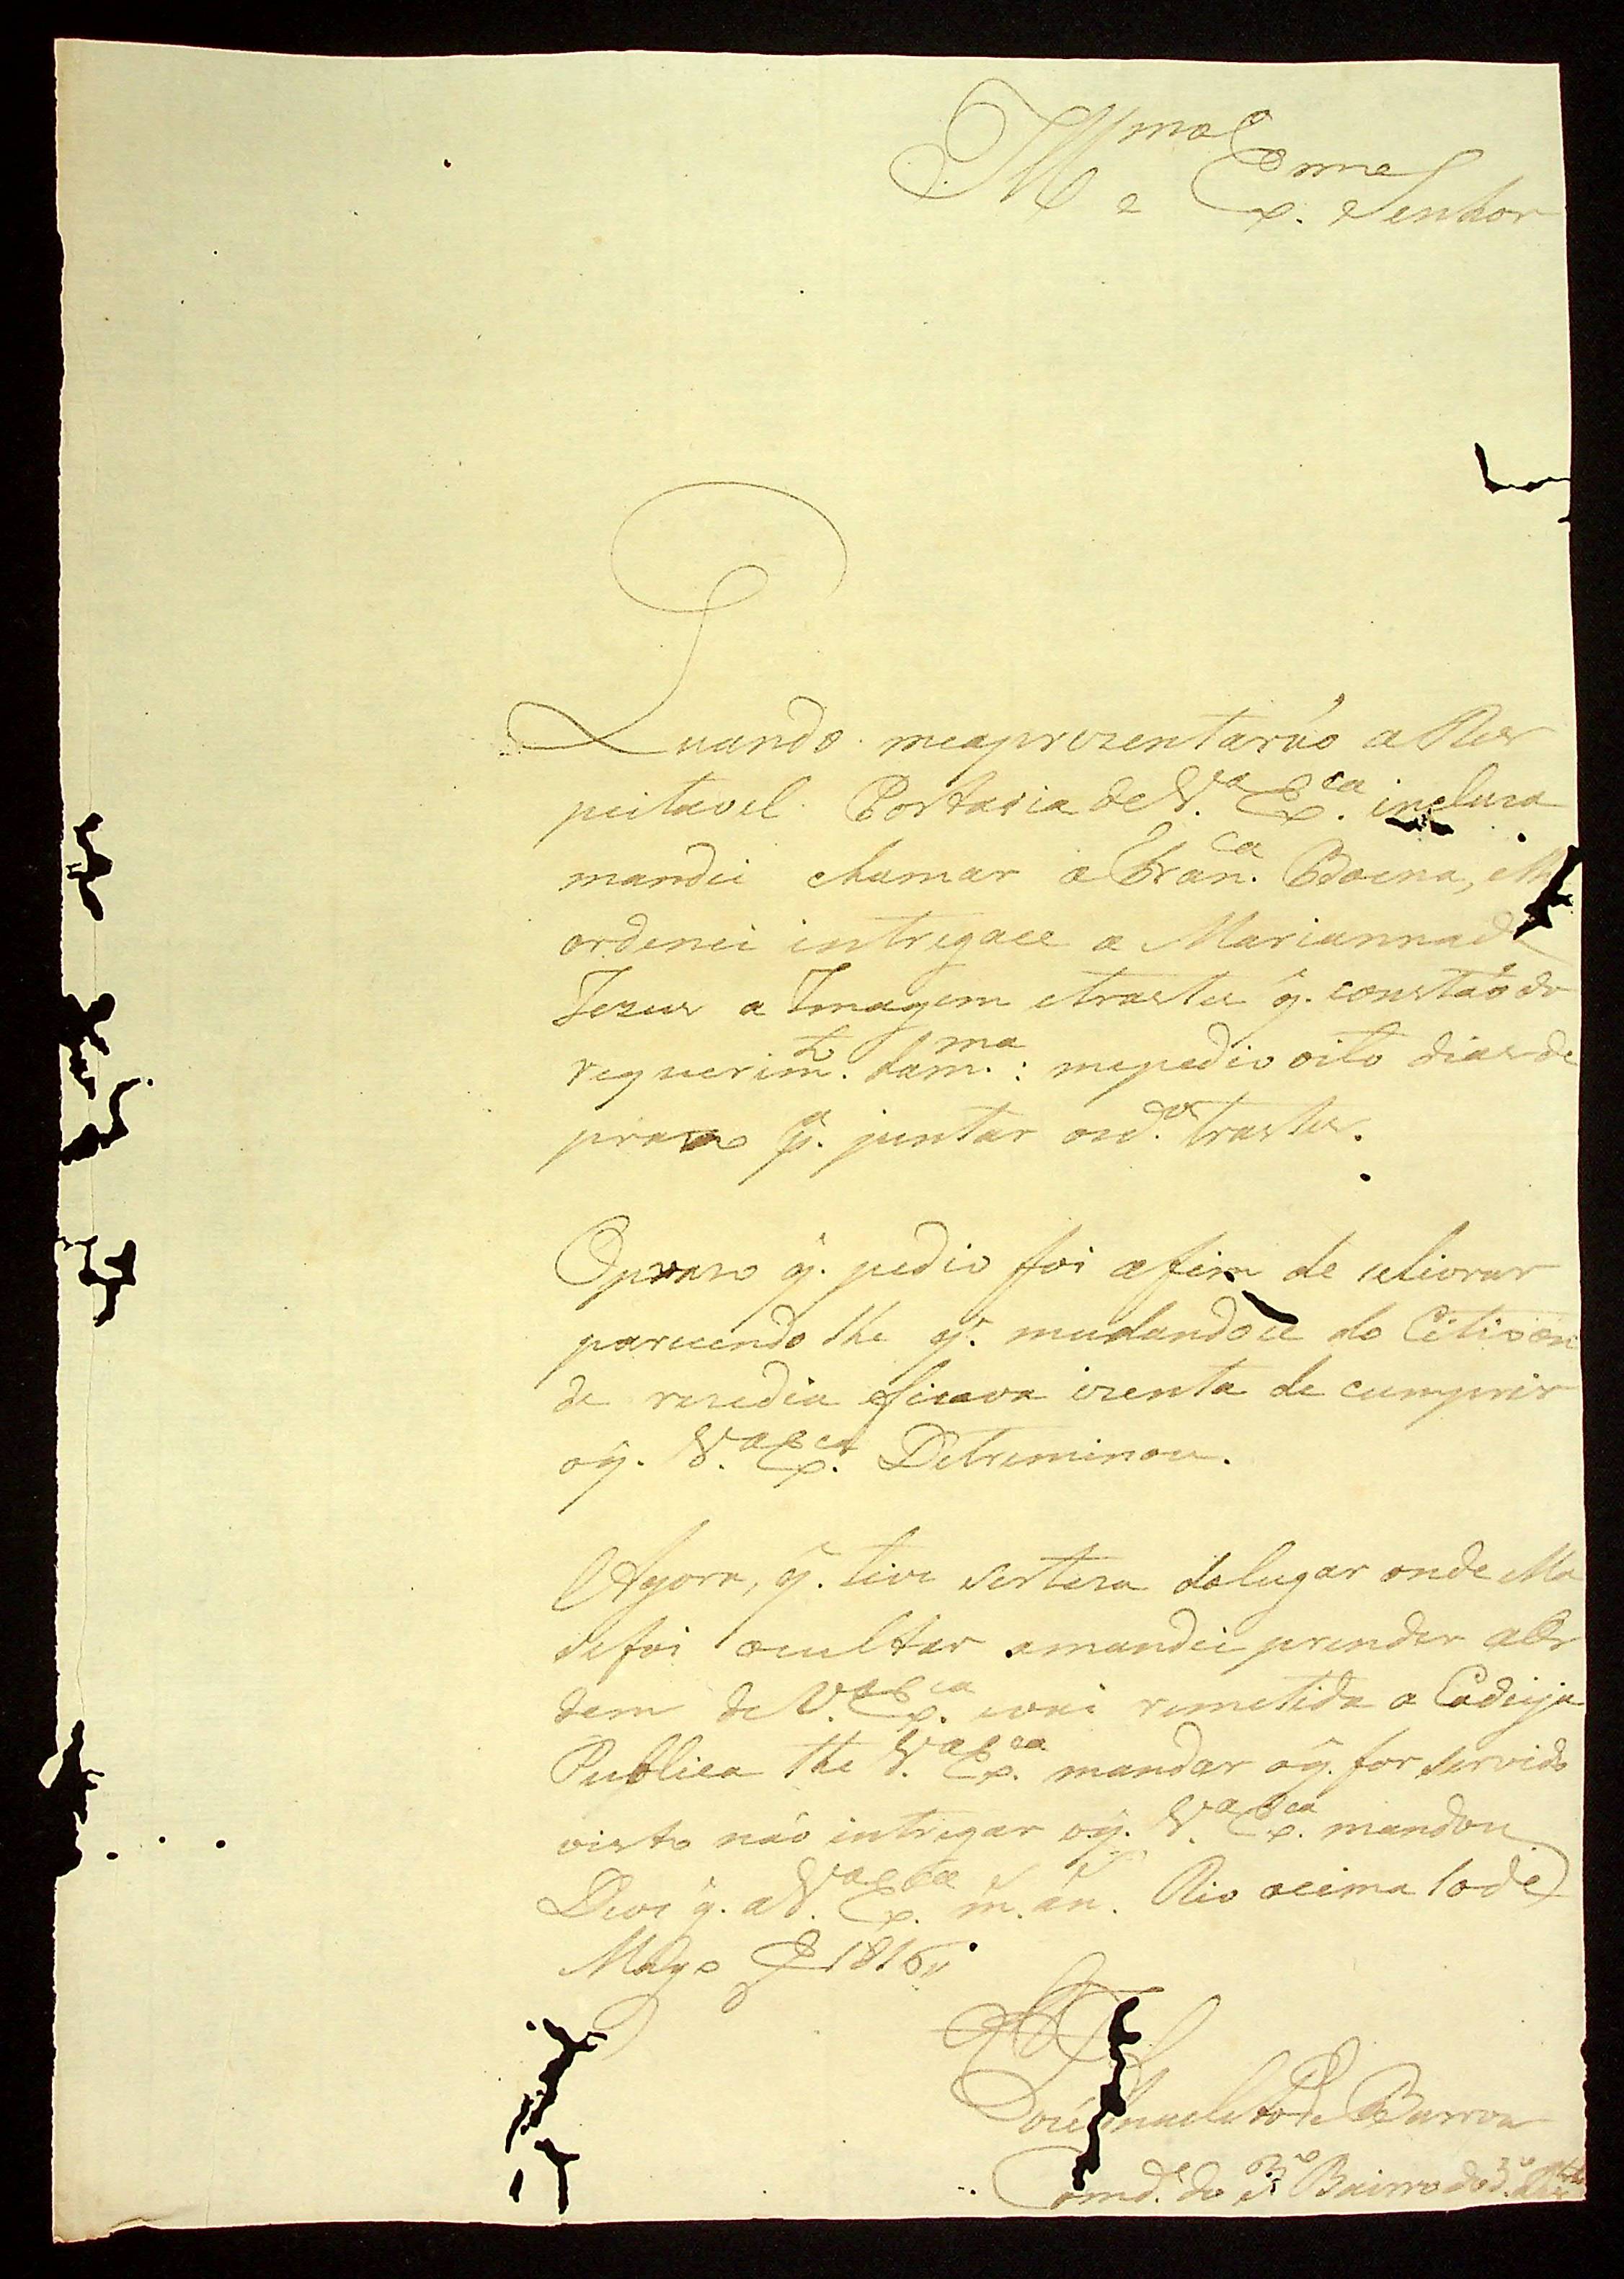 Ill.mo e Ex.mo Senhor
Quando meaprezentarão a Res
peitavel Portaria de V.a Ex.ca incluza
mandei chamar a Fran.ca Boena, e lhe
ordenei intregace a Mariannade
Jezus a Imagem etrastes q. constão do
requerim.to da m.ma: mepedio oito dias de
prazo p.a juntar os d.os trastes.
Oprazo q. pedio foi afim de seliorar
parecendo lhe q. mudandoce do Citio on
de rezedia eficava izenta de cumprir
oq. V.a Ex.ca Detreminou.
Agora, q. tive serteza dolugar onde ella
sefoi ocultar amandei prender a Or
dem de V.a Ex.ca evai remetida a Cadeija
Publica the V.a Ex.ca mandar oq. for servido
visto não intregar oq. V.a Ex.ca mandou
Deos g. a V.a Ex.ca m. an. Rio acima 10 de
Mayo de 1816
José Anacleto de Barros
Comd.e do 3.o Bairro do